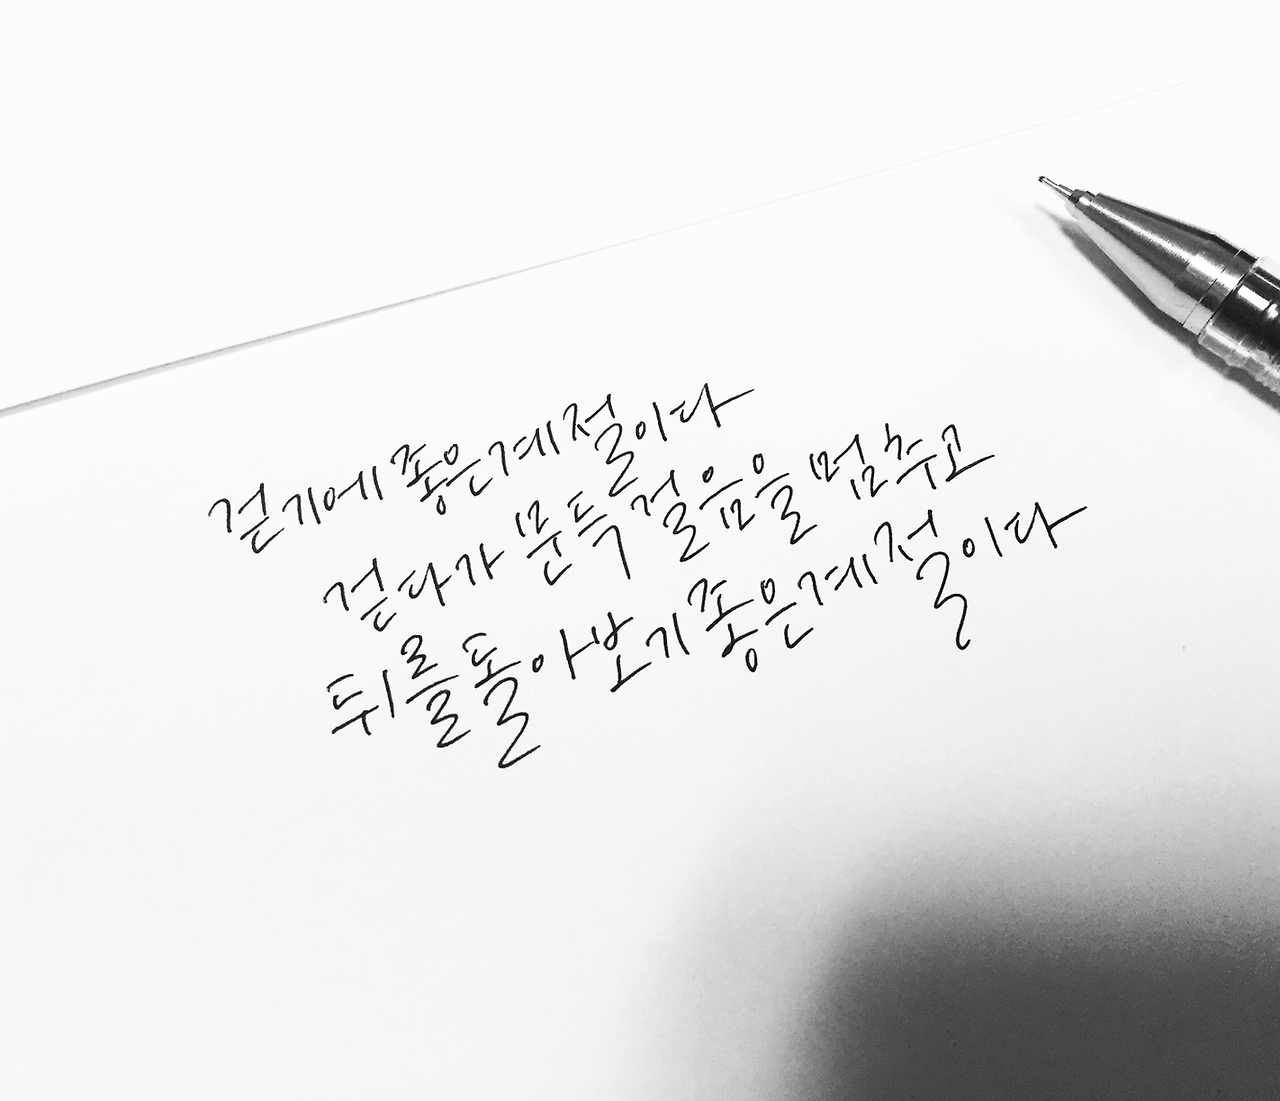 걷기에 좋은 계절이다
걷다가 문득 걸음을 멈추고
뒤를 돌아보기 좋은 계절이다